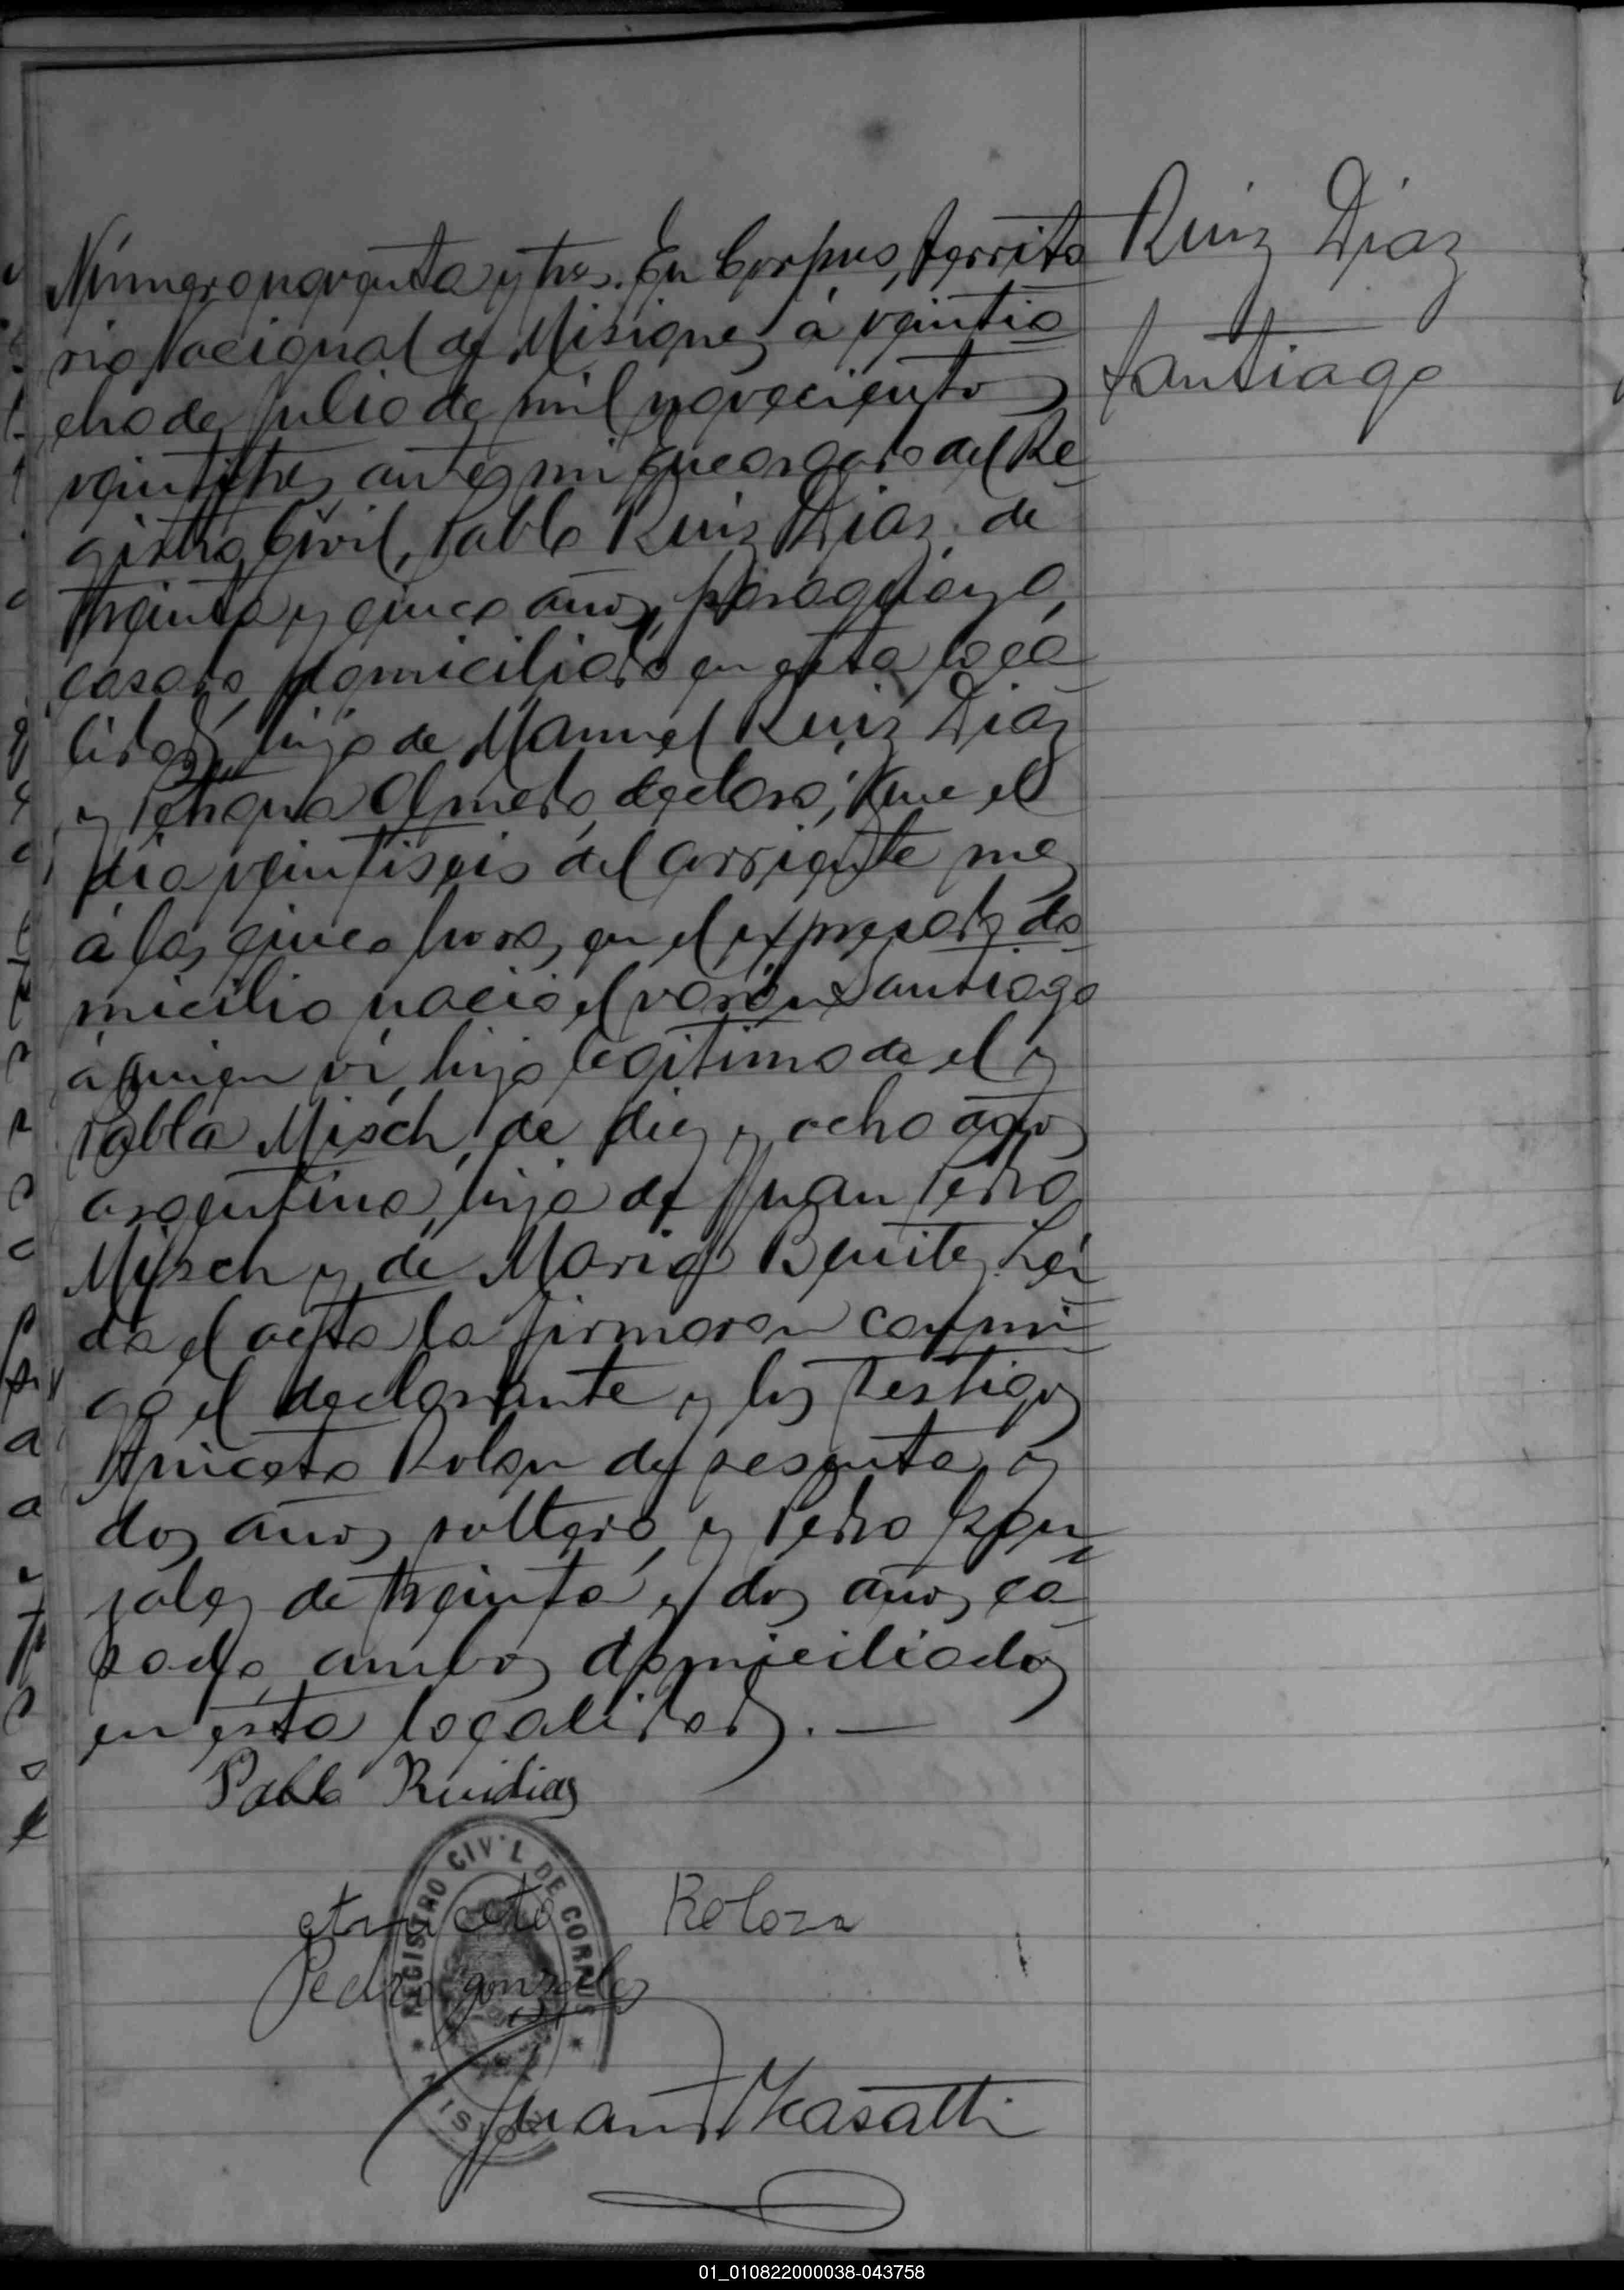 Ruiz Diaz
Santiago
Número noventa y tres. En Corpus, Territo
rio Nacional de Misiones á veintio
cho de Julio de mil novecientos
veintitres, antes mi Encargado del Re
gistro Civil, Pablo Ruiz Diaz, de
treinta y cinco años, paraguayo,
casado, domiciliado en esta loca
lidad, hijo de Manuel Ruiz Diaz
y Petrona Olmedo, declaró; Que el
día veintiseis del corriente mes
á las cinco horas, en el expresado do
micilio nació el varón Santiago
á quien ví, hijo legitimo de el y
Pabla Misch, de diez y ocho años
argentina, hija de Juan Pedro
Misch y de Maria Benitez. Lei
da el acta la firmaron conmi
go el declarante y los testigos
Aniceto Rolon de sesenta y
dos años, soltero, y Pedro Gon
zalez de treinta y dos años, ca
sado, ambos domiciliados
en esta localidad. —
Pablo Ruidias
Aniceto Rolon
Pedro gonzales
Juan Masatti
REGISTRO CIVIL DE CORPUS
* MISIONES *
01_010822000038-043758